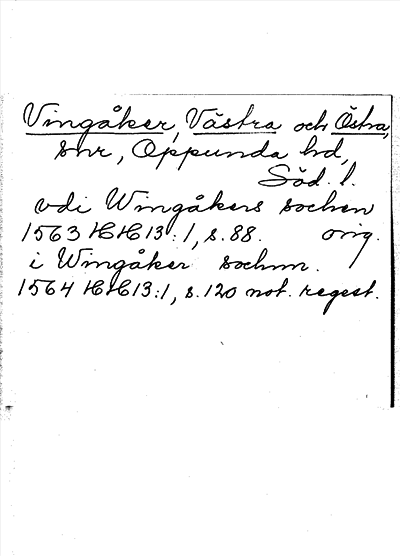 Vingåker, Västra och Östra,
snr, Oppunda hd,
Söd. l.
vdi Wingåkers sochen
1563 HH13:1, s. 88. orig.
i Wingåker sochnn.
1564 HH13:1, s. 120 not. regest.